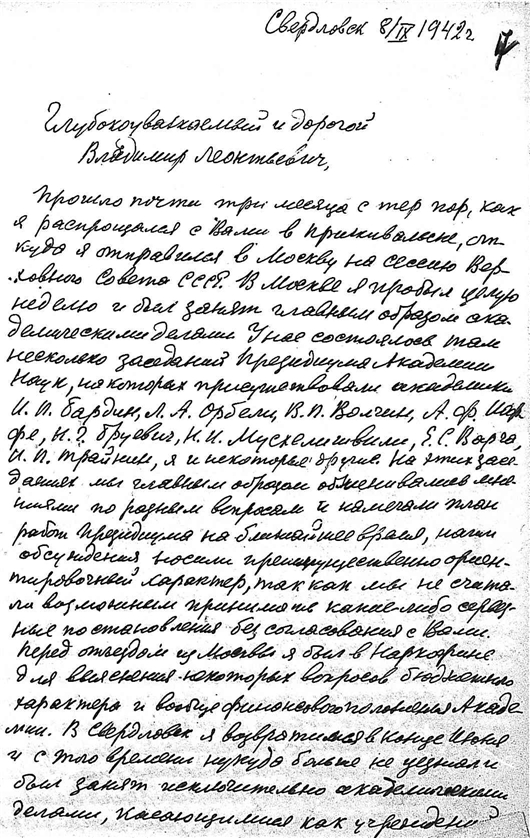 Свердловск 8/IX 1942 г
Глубокоуважаемый и дорогой
Владимир Леонтьевич,
Прошло почти три месяца с тех пор, как
я распрощался с Вами в Пржевальске, от-
куда я отправился в Москву на сессию Вер-
ховного Совета СССР. В Москве я пробыл целую
неделю и был занят главным образом ака-
демическими делами. У нас состоялось там
несколько заседаний Президиума Академии
Наук, на которых присутствовали академики
И. П. Бардин, Л. А. Орбели, В. П. Волгин, А. Ф. Иоф-
фе, Н. Г. Бруевич, Н. И. Мусхелишвили, Е. С. Варга,
И. П. Трайнин, я и некоторые другие. На этих засе-
даниях мы главным образом обменивались мне-
ниями по разным вопросам и намечали план
работ Президиума на ближайшее время, наши
обсуждения носили преимущественно ориен-
тировочный характер, так как мы не счита-
ли возможным принимать какие-либо серьез-
ные постановления без согласования с Вами.
Перед отъездом из Москвы я был в Наркомфине
для выяснения некоторых вопросов бюджетного
характера и вообще финансового положения Акаде-
мии. В Свердловск я возвратился в конце Июня
и с того времени никуда больше не уезжал и
был занят исключительно академическими
делами, касающимися как учреждений